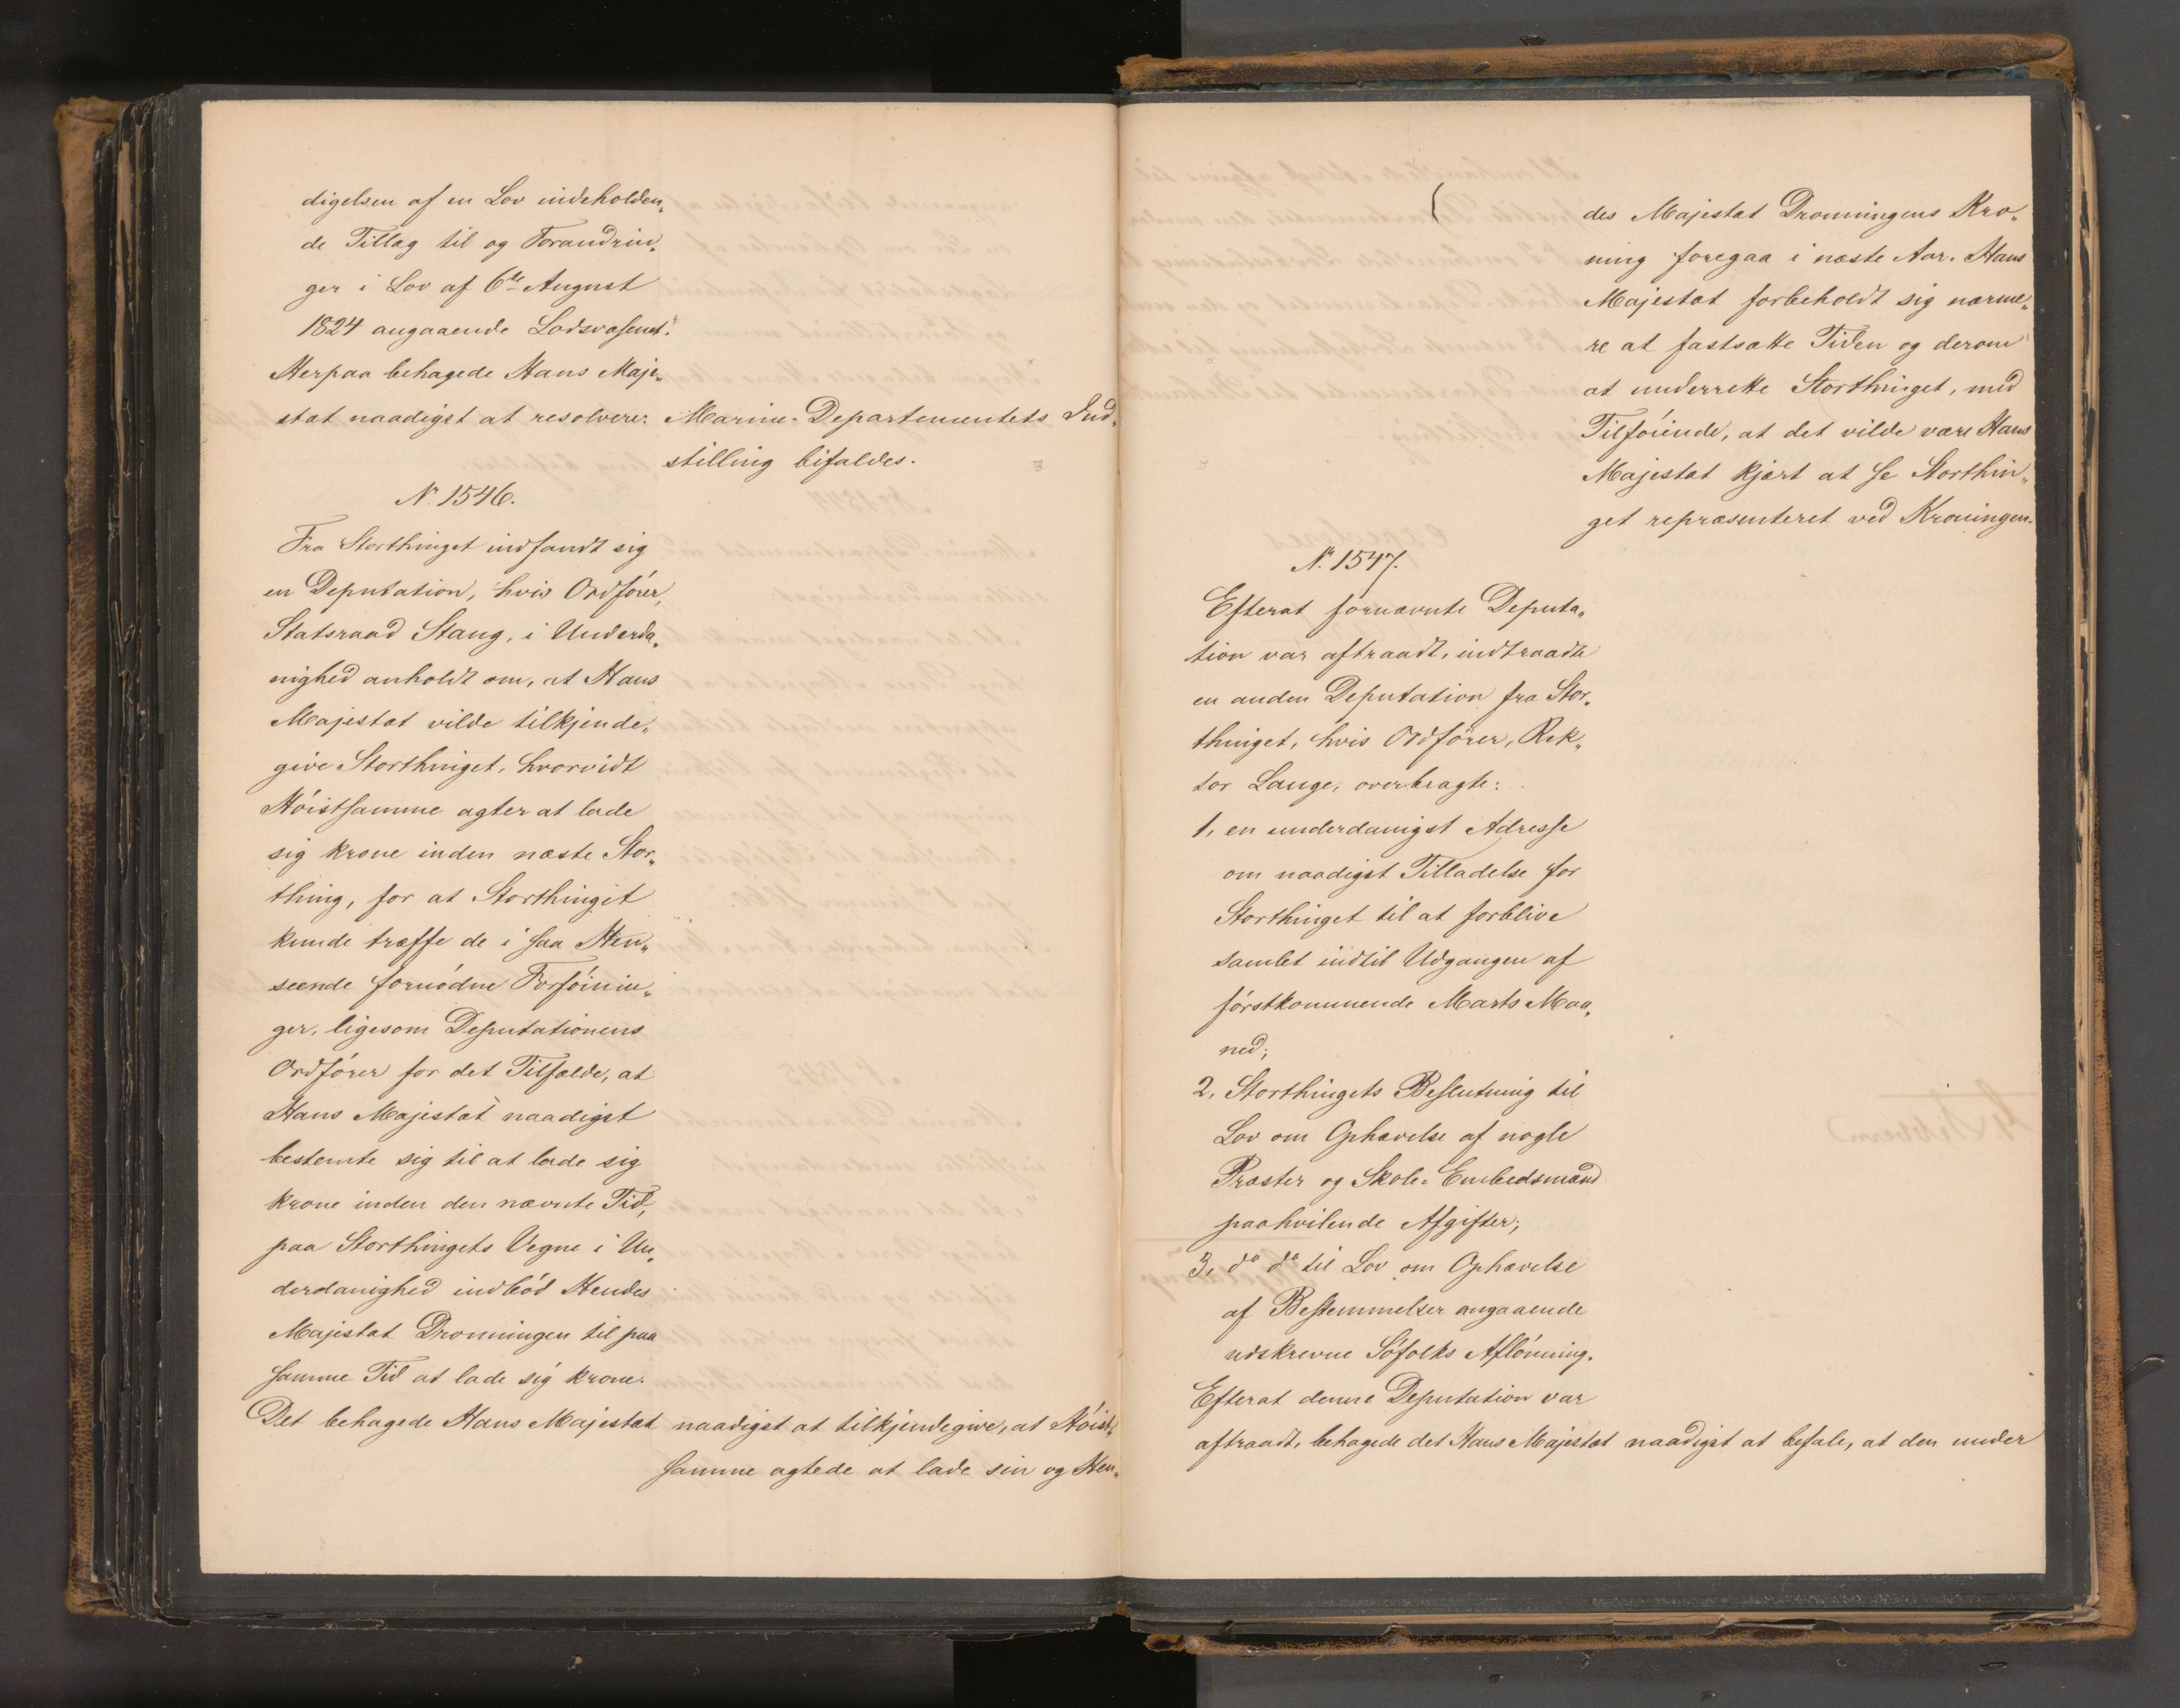 digelsen af en Lov indeholden„
de Tillæg til og Forandrin„
ger i Lov af 6te August
1824 angaaende Lodsvæsenet."
Herpaa behagede Hans Maje„
stæt naadigst at resolvere: Marine-Departementets Ind„
stilling bifaldes.
No 1546.
Fra Storthinget indfandt sig
en Deputation, hvis Ordfører,
Statsraad Stang, i Underda„
nighed anholdt om, at Hans
Majestæt vilde tilkjende„
give Storthinget, hvorvidt
Høistsamme agter at lade
sig krone inden næste Stor„
thing, for at Storthinget
kunde træffe de i saa Hen„
seende fornødne Forføinin„
ger, ligesom Deputationens
Ordfører for det Tilfælde, at
Hans Majestæt naadigst
bestemte sig til at lade sig
krone inden den nævnte Tid,
paa Storthingets Vegne i Un„
derdanighed indbød Hendes
Majestæt Dronningen til paa
samme Tid at lade sig krone.
Det behagede Hans Majestæt naadigst at tilkjendegive, at Høist„
samme agtede at lade sin og Hen„
des Majestæt Dronningens Kro„
ning foregaa i næste Aar. Hans
Majestæt forbeholdt sig nærme„
re at fastsætte Tiden og derom
at underrette Storthinget, med
Tilføiende, at det vilde være Hans
Majestæt kjært at se Storthin„
get repræsenteret ved Kroningen.
No 1547.
Efterat fornævnte Deputa„
tion var aftraadt, indtraadte
en anden Deputation fra Stor„
thinget, hvis Ordfører, Rek„
tor Lange, overbragte:
1, en underdanigst Adresse
om naadigst Tilladelse for
Storthinget til at forblive
samlet indtil Udgangen af
førstkommende Marts Maa„
ned;
2, Storthingets Beslutning til
Lov om Ophævelse af nogle
Præster og Skole-Embedsmænd
paahvilende Afgifter;
3, do do til Lov om Ophævelse
af Bestemmelser angaaende
udskrevne Søfolks Aflønning.
Efterat denne Deputation var
aftraadt, behagede det Hans Majestæt naadigst at befale, at den under